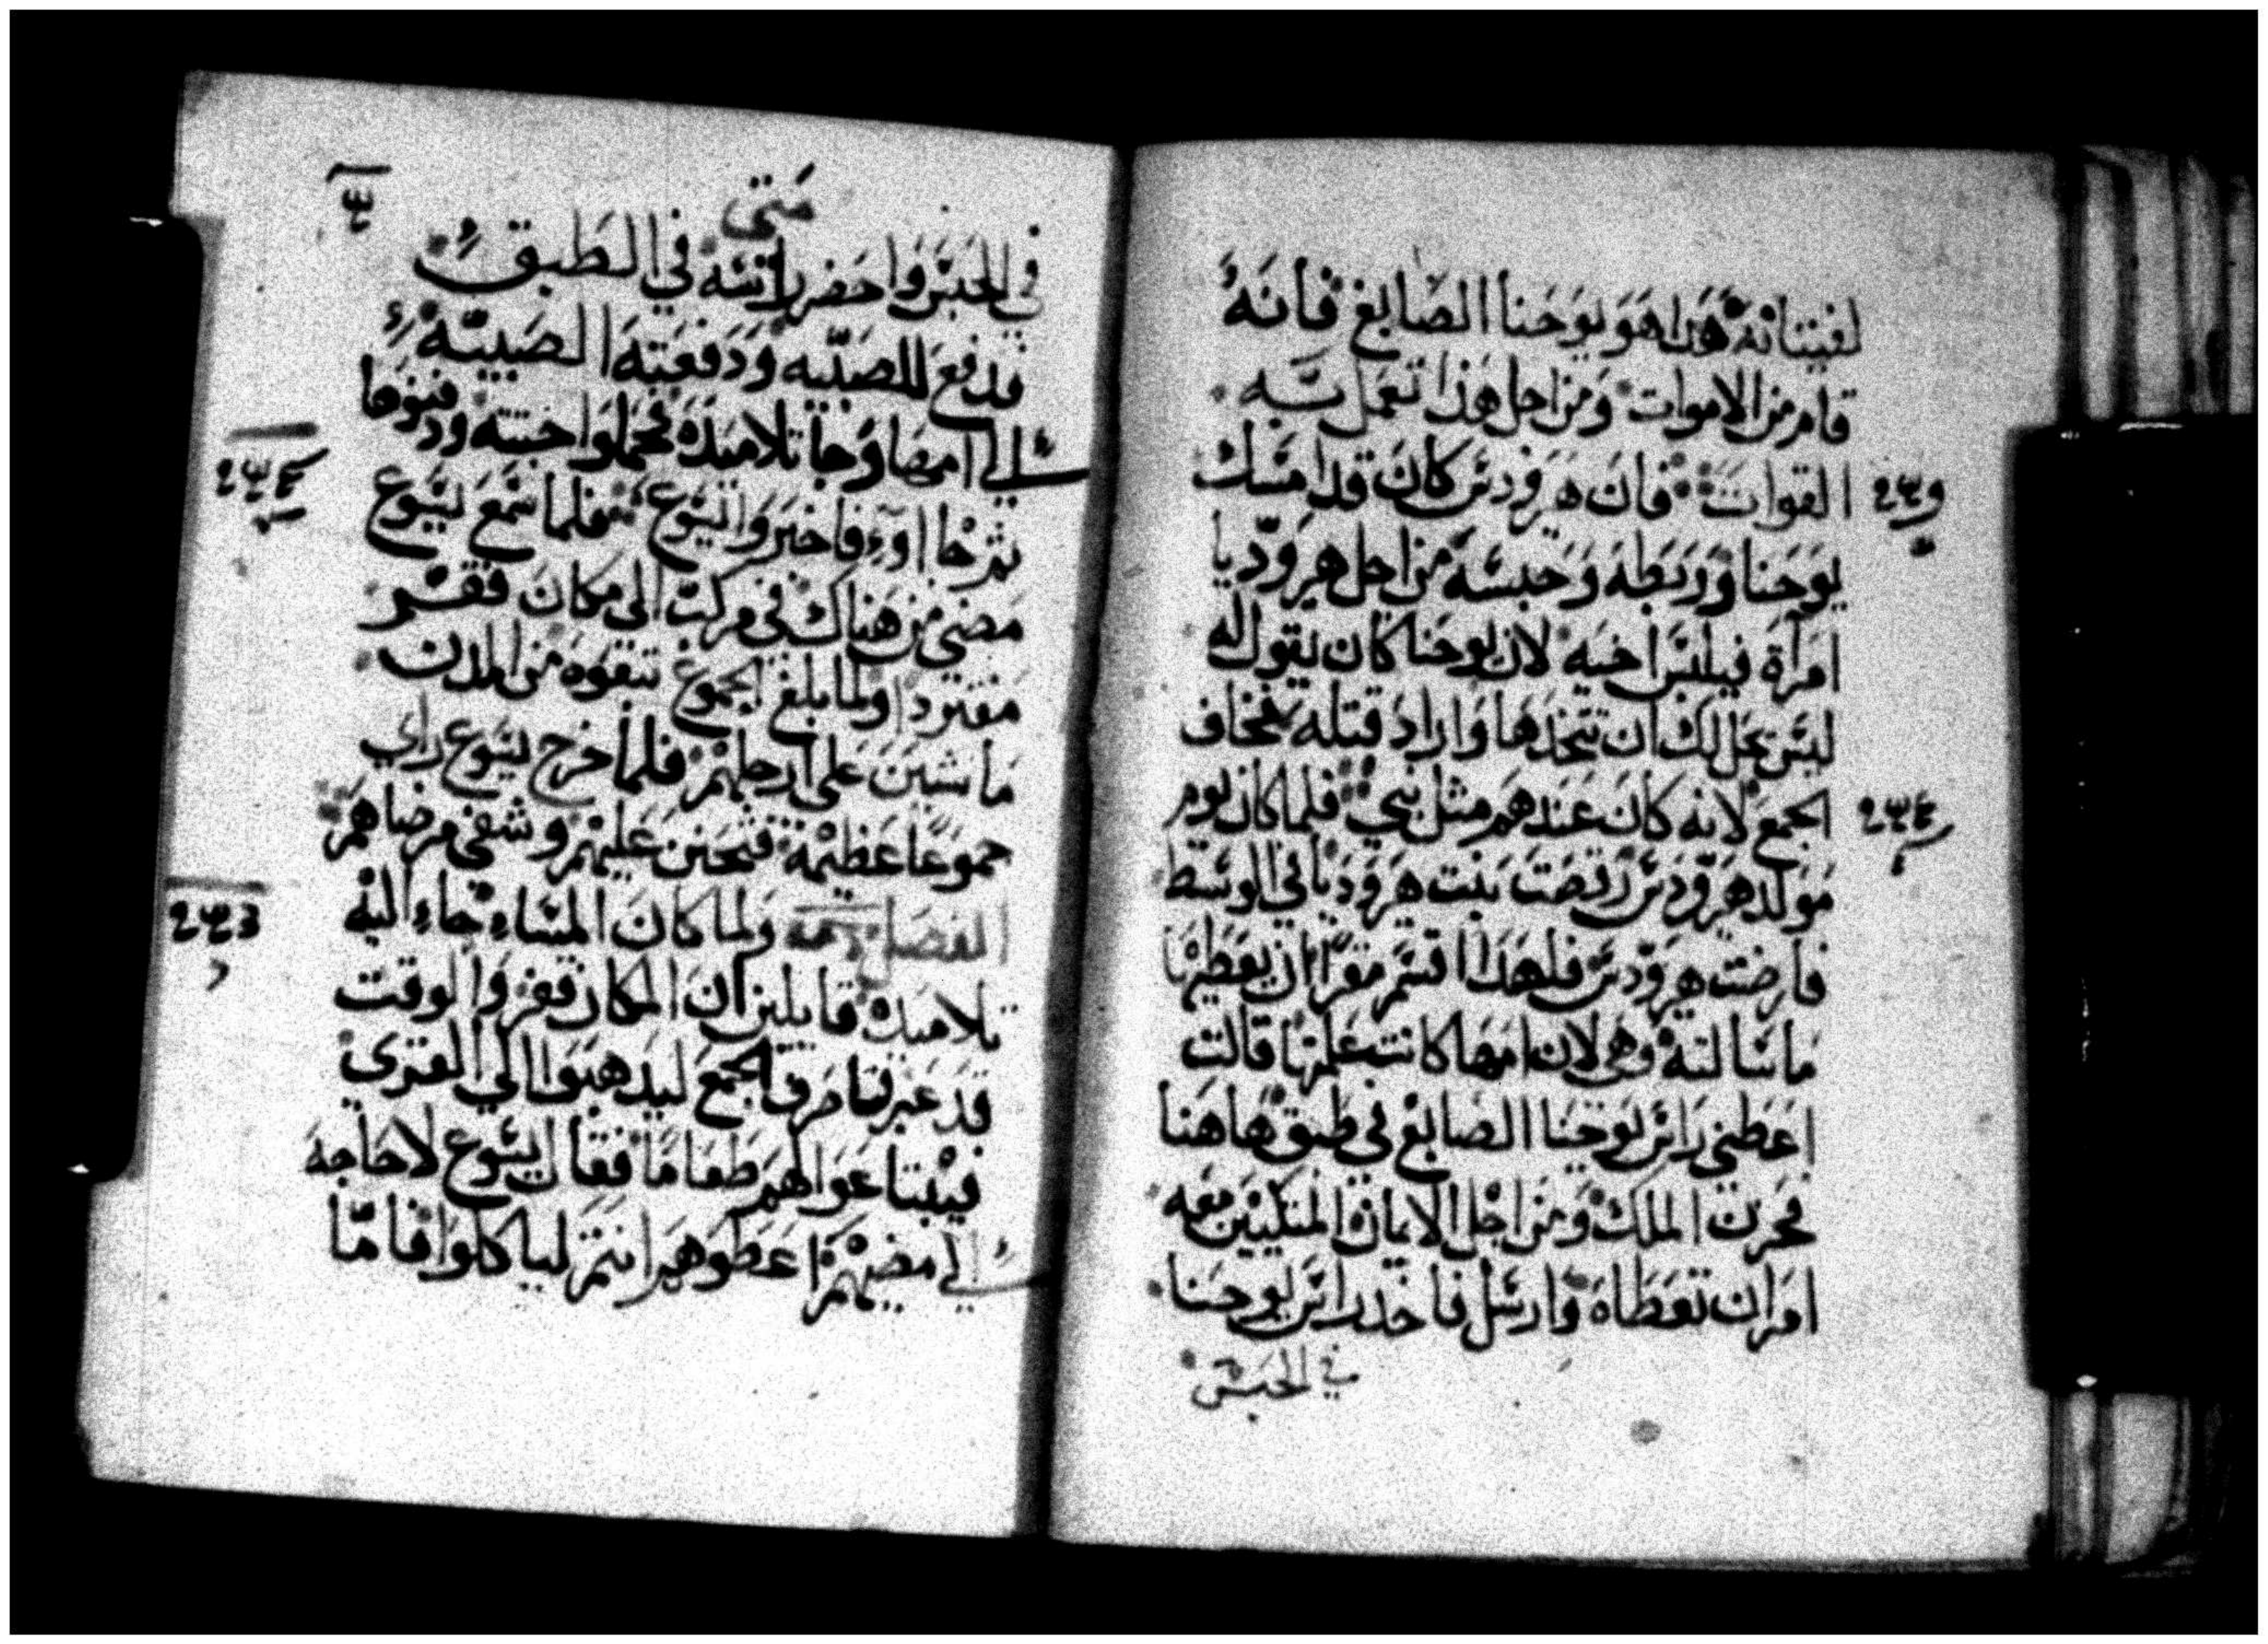 لفتيانه هذا هو يوحنا الصابغ فانه
قام من الاموات ومن اجل هذا تعمل به
القوات فان هيرودس كان قد امسك
يوحنا وربطه وحبسه من اجل هيروديا
امرأة فيلبس اخيه لان يوحنا كان يقول له
ليس تحل لك ان تتخذها واراد قتله فخاف
الجمع لانه كان عندهم مثل نبي فلما كان يوم
مولد هيرودس رقصت بنت هيروديا في الوسط
فارضت هيرودس فلهذا اقسم مقرا ان يعطيها
ما سالته وهي لان امها كانت علمتها قالت
اعطني راس يوحنا الصابغ في طبق هاهنا
فحزن الملك ومن اجل الايمان المتكيين معه
امر ان تعطاه وارسل فاخذ راس يوحنا
في الحبس
متى
في الحبس واحضر راسه في الطبق
فدفع للصبيه ودفعته الصبيه
الي امها وجا تلاميذه فحملوا جثته ودفنوها
ثم جااوء فاخبروا ايسوع فلما سمع يسوع
مضي من هناك في مركب الي مكان قفر
مفترد اولما بلغ الجموع تبعوه من المدن
ماشيين على ارجلهم فلما خرج يسوع راي
جموعا عظيمة فتحنن عليهم وشفى مرضاهم
الفصل ولما كان المساء جاء اليه
تلاميذه قايلين ان المكان قفر والوقت
قد عبر فامر ق الجمع ليذهبوا الي القري
فيبتاعوا لهم طعاما فقال يسوع لا حاجه
الي مضيهم اعطوهم انتم لياكلوا فاما